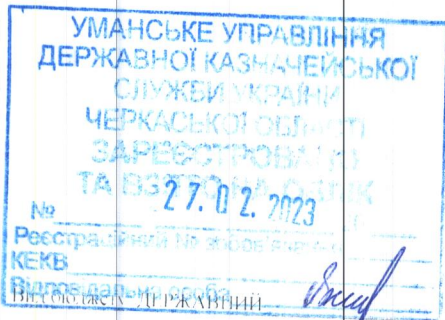 УМАНСЬКЕ УПРАВЛІННЯ
ДЕРЖАВНОЇ КАЗНАЧЕЙСЬКОЇ
СЛУЖБИ УКРАЇНИ
ЧЕРКАСЬКОЇ ОБЛАСТІ
ЗАРЕЄСТРОВАНО
ТА ВЗЯТО НА ОБЛІК
27.02.2023
№
Реєстраційний №
КЕКВ
Відповідальна особа
Вид бюджету ДЕРЖАВНИЙ